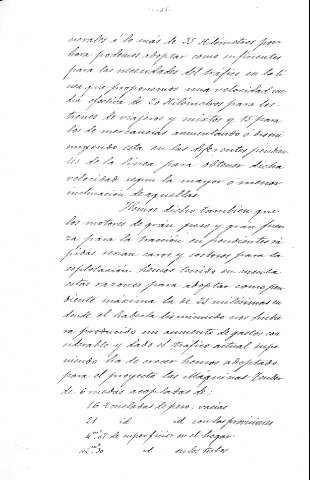 nerales á lo más de 35 kilometros por
hora podemos adoptar como suficientes
para las necesidades del tráfico en la li
nea que proponemos una velocidad me
dia efectiva de 20 kilómetros para los
trenes de viajeros y mixtos y 15 para
los de mercancias aumentando ó dismi
nuyendo esta en las diferentes pendien
tes de la linea para obtener dicha
velocidad segun la mayor o menor
inclinación de aquellas.
Hemos dicho tambien que
los motores de gran peso y gran fuer
za para la tracción en pendientes rá
pidas serian caros y costosos para la
explotación hemos tenido en cuenta
estas razones para adoptar como pen
diente máxima la de 25 milésimas en
donde el haberla disminuido nos hubie
ra producido un aumento de gastos con
siderable y dado el tráfico actual supo
niendo ha de crecer hemos adoptado
para el proyecto las Máquinas Tender
de 6 ruedas acopladas de:
16 Toneladas de peso: vacias
21 id id con las provisiones
4 de superficie en el hogar
id en los tubos